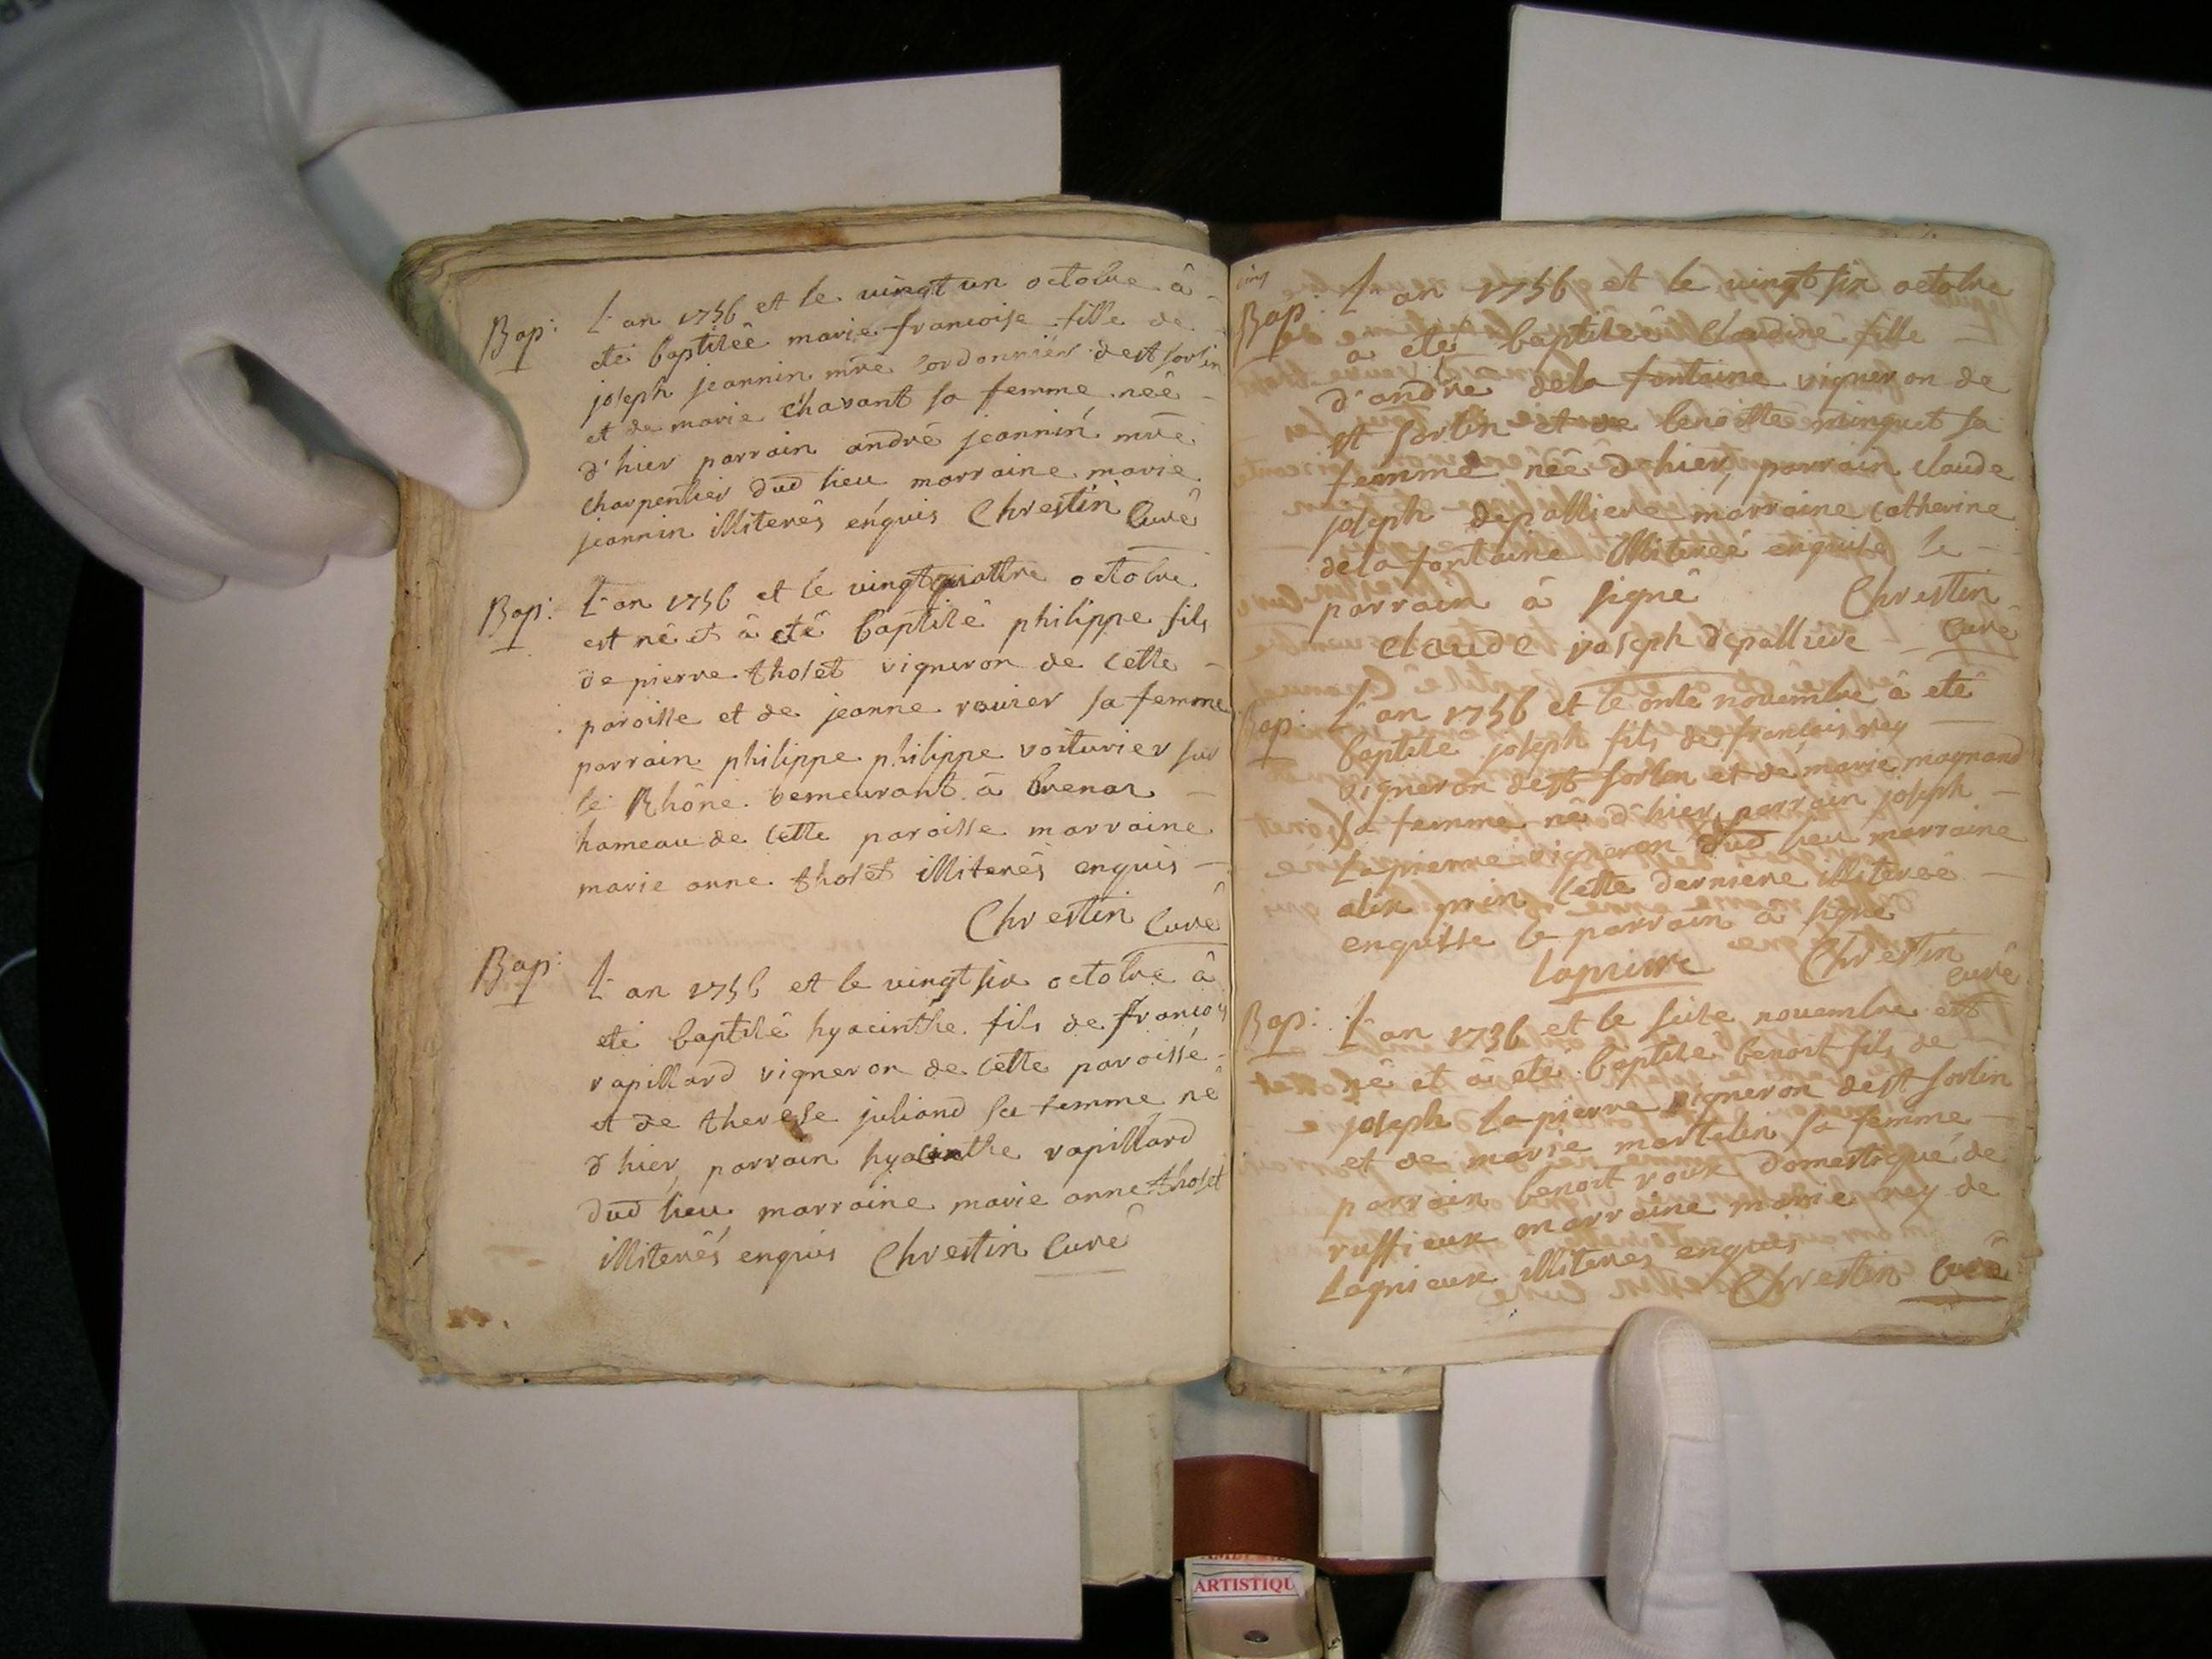 Bap: L'an 1756 et le vingt un octobre â
eté baptisêe marie francoise fille de
joseph jeannin mre cordonnier de st sorlin
et de marie chavant sa femme neê
d'hier parrain andrê jeannin mre
charpentier dud lieu marraine marie
jeannin illiterês enquis Chrestin Curê
Bap: L'an 1756 et le vingtquattre octobre
est nê et â etê baptisê philippe fils
de pierre tholet vigneron de cette
paroisse et de jeanne rouier sa femme
parrain philippe philippe voiturier sur
le Rhône demeurant â
hameau de cette paroisse marraine
marie anne tholet illiterês enquis
Chrestin Curê
Bap: L'an 1756 et le vingt six octobre â
eté baptisê hyacinthe fils de francois
rapillard vigneron de cette paroisse
et de therese juliand sa femme nê
d'hier, parrain hyacinthe rapillard
dud lieu marraine marie anne tholet
illiterês enquis Chrestin Curê
Bap: L'an 1756 et le vingt six octobre
a eté baptisêe Claudine fille
d'andre dela fontaine vigneron de
st sorlin et de benoitte minguet sa
femme neê d'hier, parrain claude
joseph depalliere marraine catherine
dela fontaine illitereé enquise le
parrain â signê Chrestin
claude joseph depalliere curê
Bap: L'an 1756 et le onze novembre â eté
baptisê joseph fils de francois rey
vigneron de st sorlin et de marie magnand
sa femme nê d'hier parrain joseph
Lapierre vigneron dud lieu marraine
alix prin cette derniere illitereê
enquisse le parrain a signê
lapierre Chrestin
curê
Bap: L'an 1756 et le seize novembre est
nê et â eté baptisê benoit fils de
joseph Lapierre vigneron de st sorlin
et de marie martelin sa femme
parrain benoit roux domestique de
ruffieux marraine marie rey de
Lagnieux illiteres enquis
Chrestin Curê
ARTISTIQU